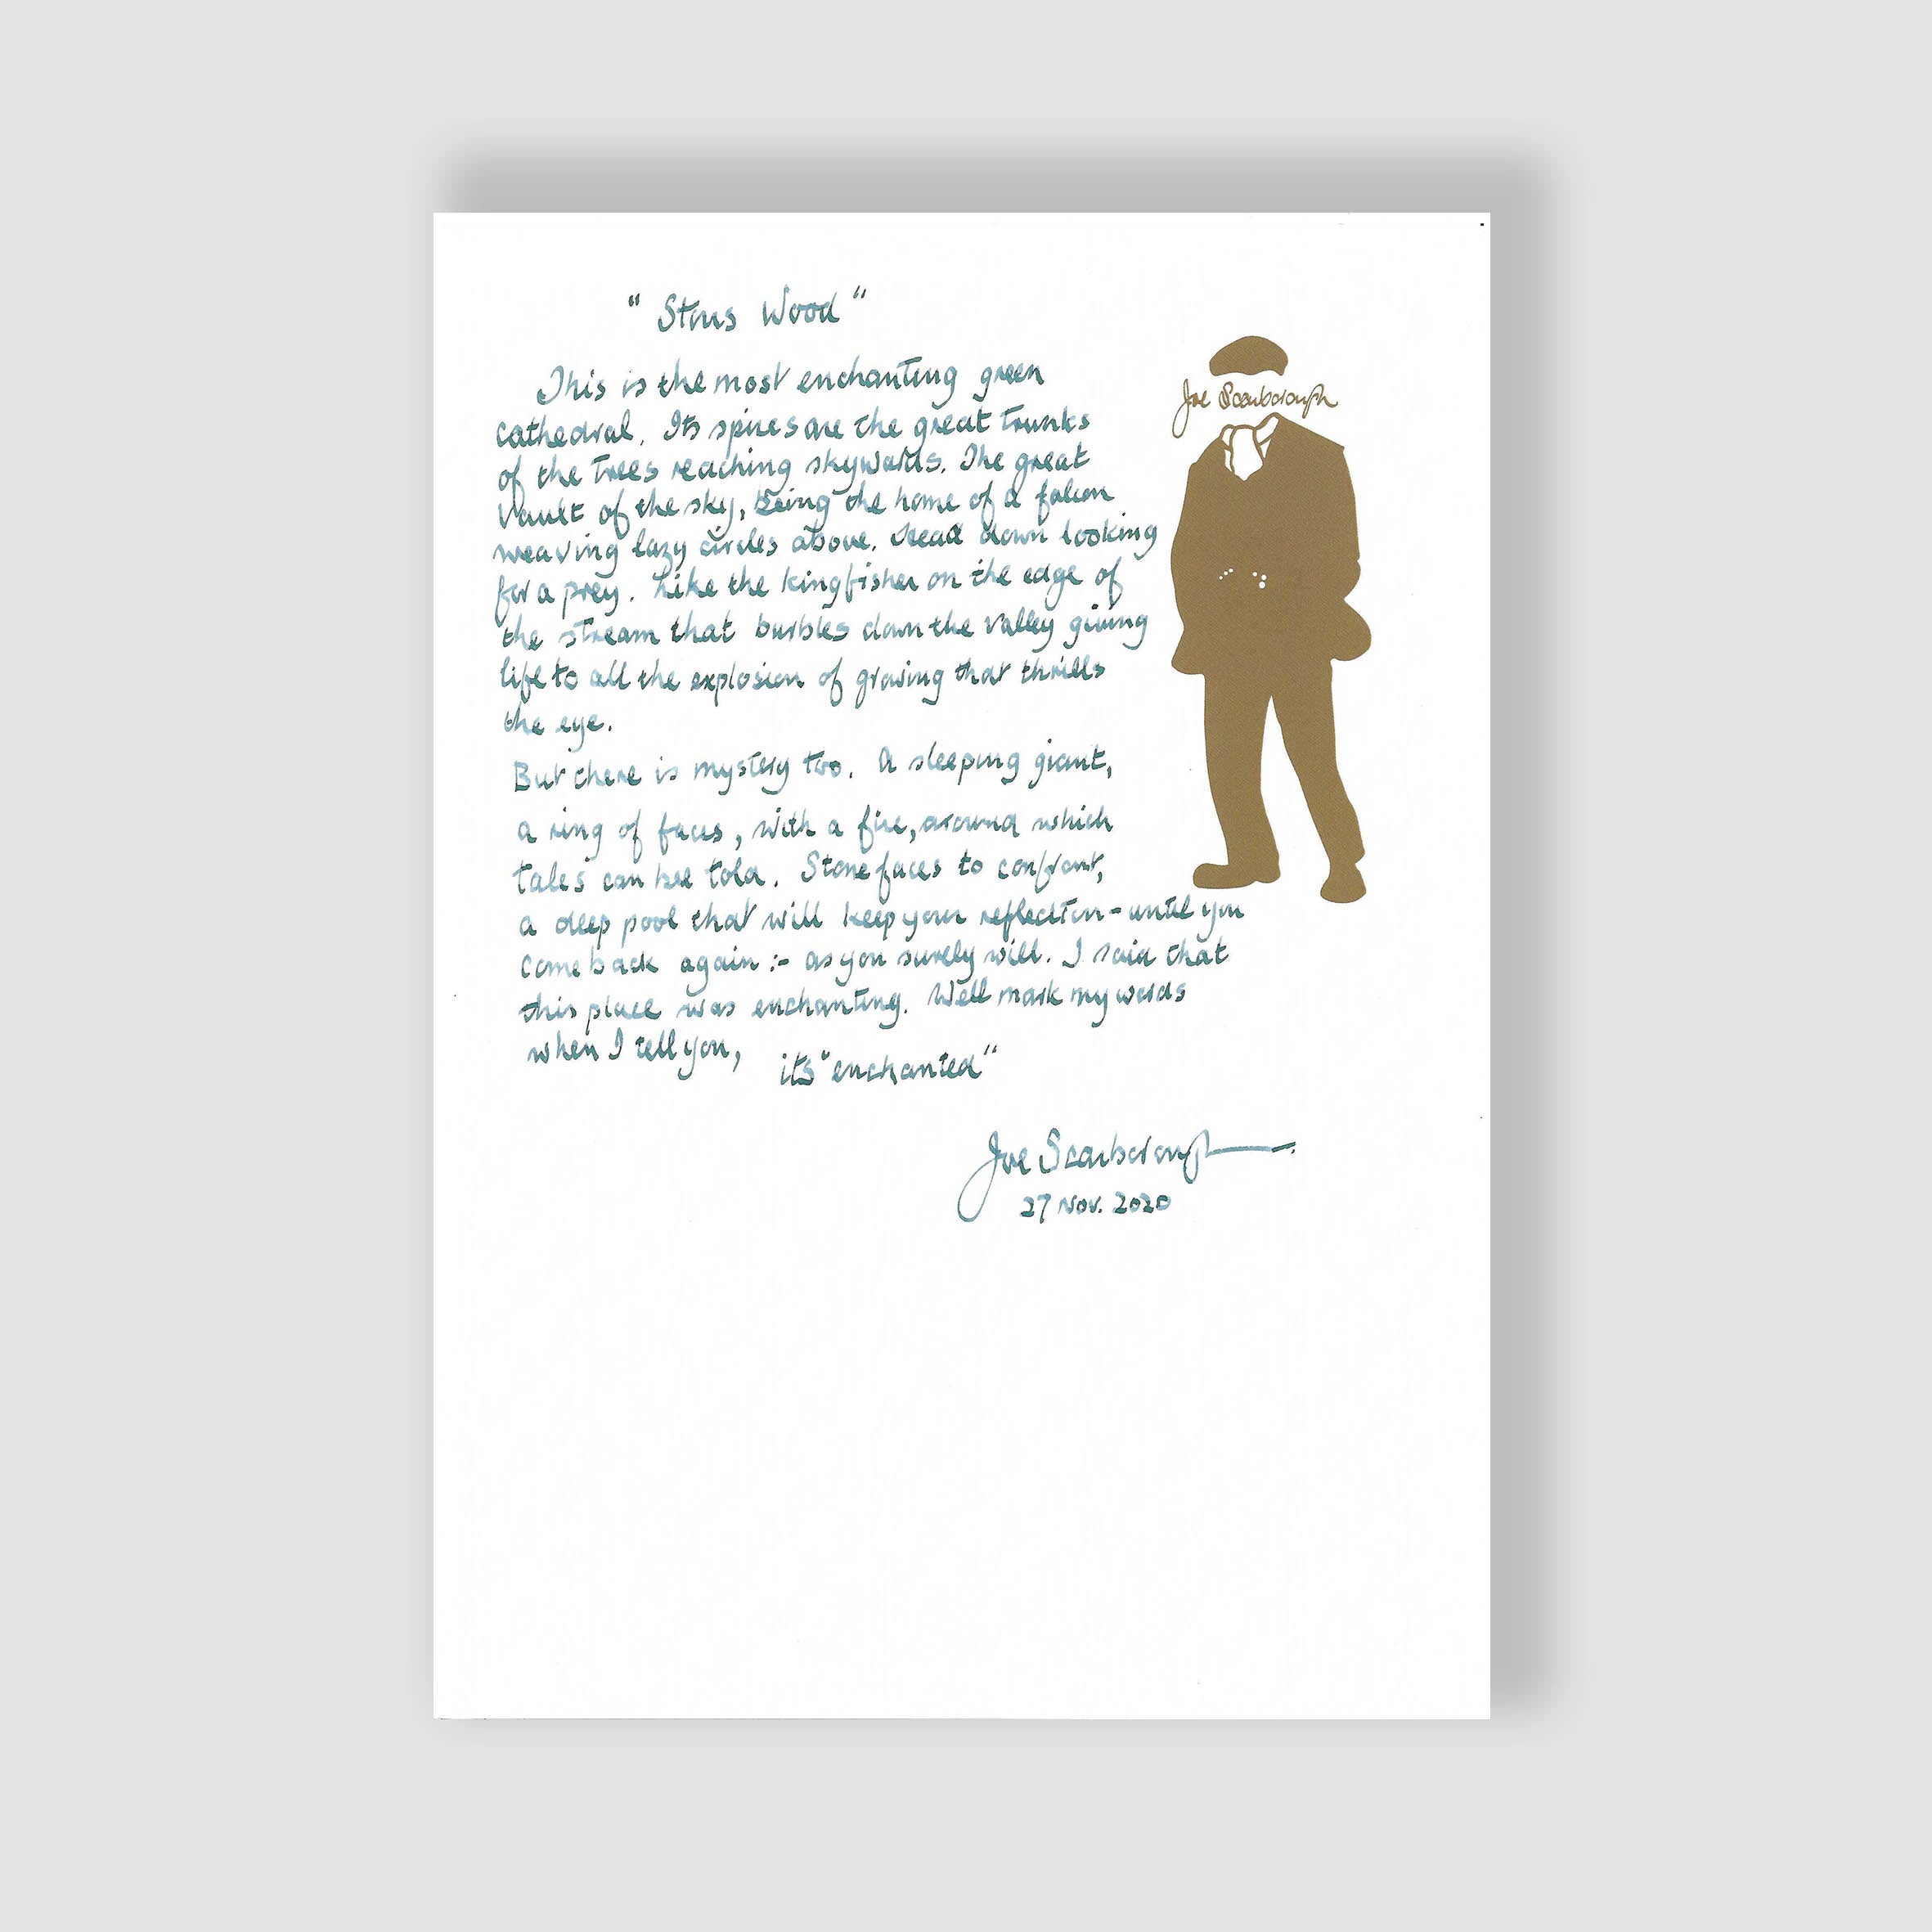 " Storrs Wood "
This is the most enchanting green
cathedral. Its spires are the great trunks
of the trees reaching skywards. The great
vault of the sky, being the home of a falcon
weaving lazy circles above. Head down looking
for a prey. Like the kingfisher on the edge of
the stream that burbles down the valley giving
life to all the explosion of growing that thrills
the eye.
But there is mystery too. A sleeping giant,
a ring of faces, with a fire, around which
tales can bee told. Stone faces to confront,
a deep pool that will keep your reflection - until you
come back again :- as you surely will. I said that
this place was enchanting. Well mark my words
when I tell you, its "enchanted"
Joe Scarborough
27 Nov. 2020
Joe Scarborough